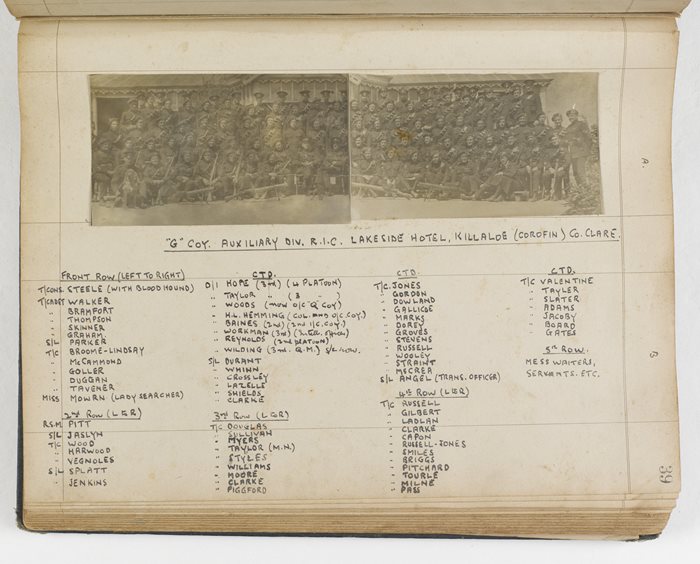 "G" COY. AUXILIARY DIV. R.I.C. LAKESIDE HOTEL, KILLALOE (COROFIN) CO. CLARE.
FRONT ROW (LEFT TO RIGHT)
T/CONS. STEELE (WITH BLOODHOUND)
T/CADET WALKER
" BRAMFORT
" THOMPSON
" SKINNER
" GRAHAM.
S/L PARKER
T/C BROOME-LINDSAY
" McCAMMOND
" GOLLER
" DUGGAN
" TAVENER
MISS MOWRN (LADY SEARCHER)
2nd ROW (L & R)
R.S.M. PITT
S/L JASLYN
T/C WOOD
" HARWOOD
" VEGNOLES
S/L SPLATT
" JENKINS
CTD.
D/I HOPE (3rd) (4 PLATOON)
" TAYLOR " (3 " )
" WOODS (now O/C "Q" COY)
" H.L. HEMMING (COL. AND O/C COY)
" BAINES (2nd) (2nd I/C. COY)
" WORKMAN (3rd) (Intell. Officer)
" REYNOLDS (2nd PLATOON)
" WILDING (3rd. Q.M.)
S/L DURANT
" WHINN
" CROSSLEY
" LAZELLE
" SHIELDS
" CLARKE
3rd ROW (L & R)
T/C DOUGLAS
" SULLIVAN
" MYERS
" TAYLOR (M.N.)
" STYLES
" WILLIAMS
" MOORE
" CLARKE
" PIGGFORD
CTD.
T/C. JONES
" GORDON
" DOWLAND
" GALLICOE
" MARKS
" DOREY
" GROVES
" STEVENS
" RUSSELL
" WOOLEY
" STRAINT
" McCREA
S/L ANGEL (TRANS. OFFICER)
4th ROW (L & R)
T/C RUSSELL
" GILBERT
" LADLAN
" CLARKE
" CAPON
" RUSSELL-JONES
" SMILES
" BRIGGS
" PITCHARD
" TOURLE
" MILNE
" PASS
CTD.
T/C VALENTINE
" TAYLER
" SLATER
" ADAMS
" JACOBY
" BOARD
" GATES
5th ROW.
MESS WAITERS,
SERVANTS. ETC.
A.
B
39